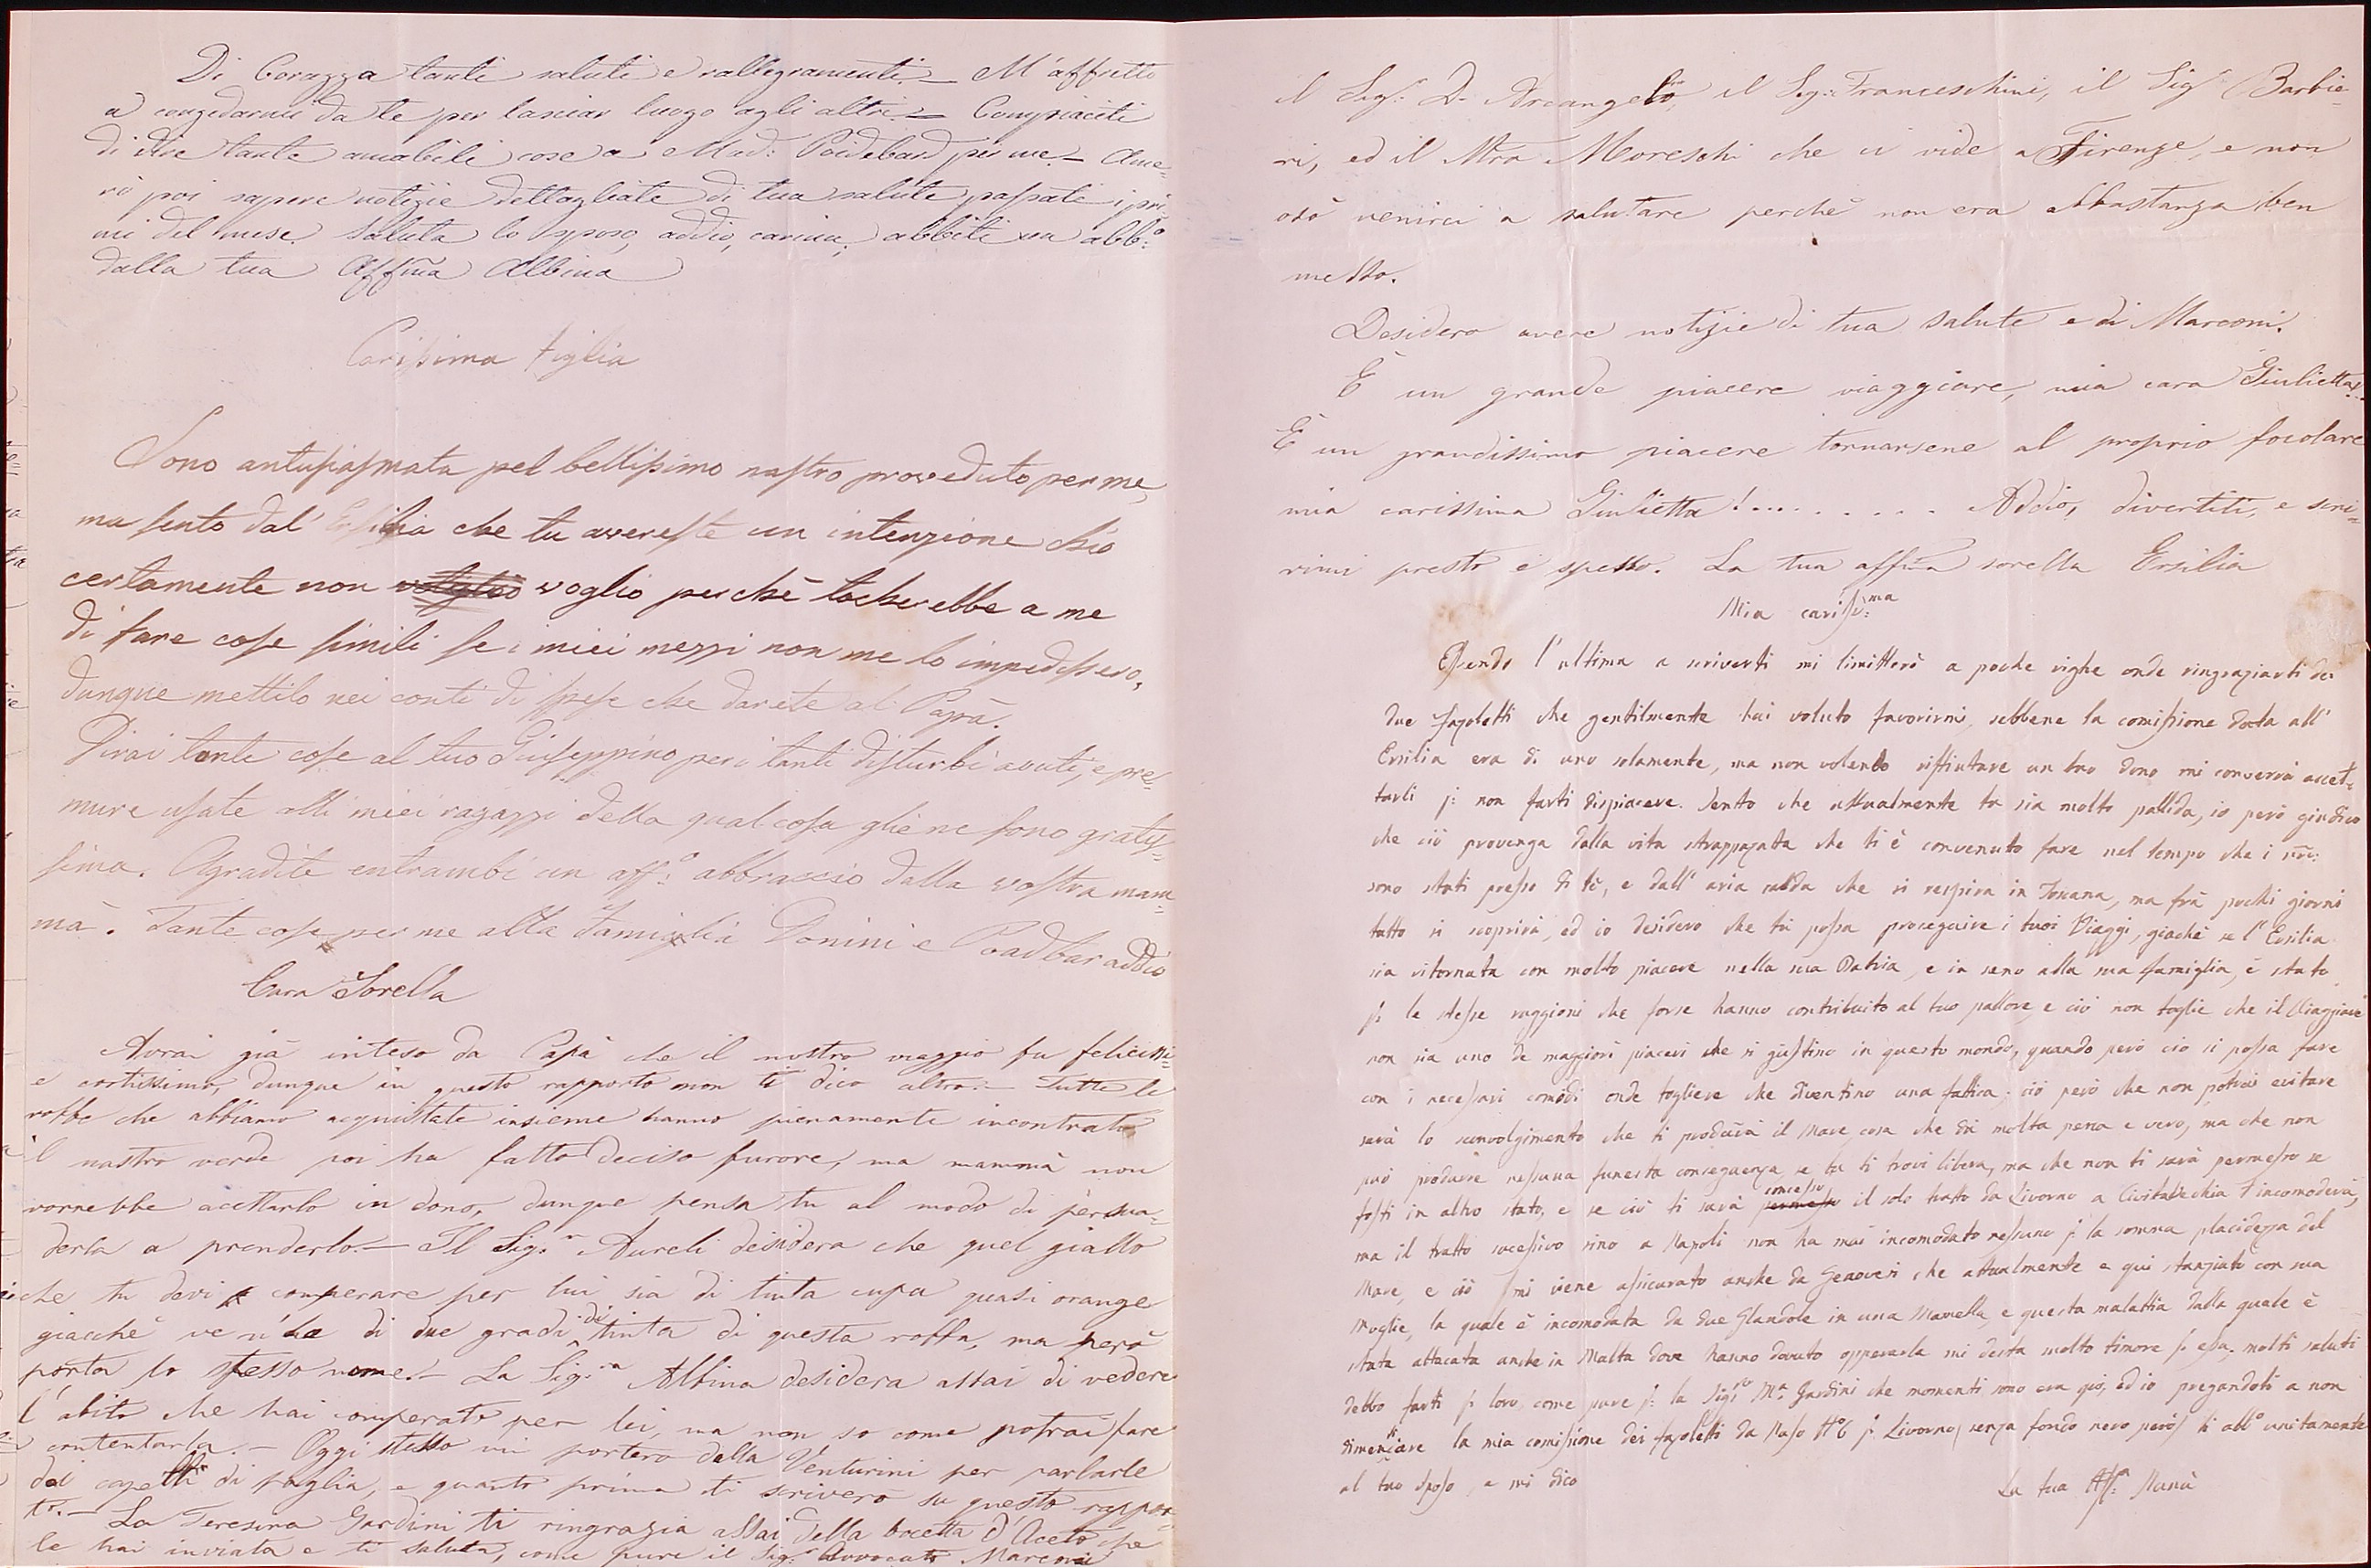 Di Corazza tanti saluti e rallegramenti. — M'affretto
a congedarmi da te per lasciar luogo agli altri. — Compiaciti
di dire tante amabili cose a Mad: Poidebard per me. — Ame-
rò poi sapere notizie dettagliate di tua salute passati i pri-
mi del mese. Saluta lo sposo, addio, carina, abbiti un abb:o
dalla tua Affma Albina
Carissima figlia
Sono antusiasmata pel bellissimo nastro proveduto per me,
ma sento dal' Ersilia che tu avereste un intenzione ch'io
certamente non voglio voglio perchè tocherebbe a me
di fare cose simili se i miei mezzi non me lo impedissero,
dunque mettilo nei conti di spese che darete al Papà.
Dirai tante cose al tuo Giuseppino per i tanti disturbi avuti, e pre-
mure usate alli miei ragazzi della qual cosa gliene sono gratis-
sima. Agradite entrambi un aff:o abbraccio dalla vostra mam=
mà. Tante cose per me alla Famiglia Donini e Poadbar addio
Cara Sorella
Avrai già inteso da Papà che il nostro viaggio fu felicissi-
e cortissimo, dunque in questo rapporto non ti dico altro. — Tutte le
robbe che abbiamo acquistate insieme hanno pienamente incontrato
il nastro verde poi ha fatto deciso furore, ma mammà non
vorrebbe accettarlo in dono, dunque pensa tu al modo di persua=
derla a prenderlo. — Il Sig.r Aureli desidera che quel giallo
che tu devi comperare per lui sia di tinta cupa quasi orange
giacchè ve n'ha di due gradi di tinta di questa roffa, ma però
porta lo stesso nome. — La Sig.ra Albina desidera assai di vedere
l'abito che hai comperato per lei, ma non so come potrai fare
a contentarla. — Oggi stesso mi porterò dalla Venturini per parlarle
dei capelli di paglia, e quanto prima ti scriverò su questo rappor-
to. — La Teresina Gardini ti ringrazia assai della bocetta d'Aceto che
le hai inviata e ti saluta, come pure il Sig.r Avvocato Marconi
il Sig.r D. Arcangelo, il Sig.r Franceschini, il Sig.r Barbie-
ri, ed il Mro Moreschi che ci vide a Firenze, e non
osò venirci a salutare perchè non era abbastanza ben
messo.
Desidero avere notizie di tua salute e di Marconi.
È un grande piacere viaggiare, mia cara Giulietta,..
È un grandissimo piacere tornarsene al proprio focolare
mia carissima Giulietta!......... Addio, divertiti, e scri=
vimi presto e spesso. La tua affma sorella Ersilia
Mia cariss:ma
Essendo l'ultima a scriverti mi limitterò a poche righe onde ringraziarti dei
due fazoletti che gentilmente hai voluto favorirmi, sebbene la comissione data all'
Ersilia era di uno solamente, ma non volendo riffiutare un tuo dono mi converrà accet-
tarli p: non farti dispiacere. Sento che attualmente tu sia molto pallida, io però giudico
che ciò provenga dalla vita strappazata che ti è convenuto fare nel tempo che i nri:
sono stati presso di tè, e dall' aria calda che si respira in Toscana, ma frà pochi giorni
tutto si scoprirà, ed io desidero che tu possa proseguire i tuoi Viaggi, giachè se l'Ersilia
sia ritornata con molto piacere nella sua Patria, e in seno alla sua famiglia, è stato
p: le stesse raggioni che forse hanno contribuito al tuo pallore, e ciò non toglie che il Viaggiare
non sia uno de maggiori piaceri che si gustino in questo mondo, quando però ciò si possa fare
con i necessari comodi onde togliere che diventino una fattica; ciò però che non potrai evitare
sarà lo sconvolgimento che ti produrà il Mare cosa che dà molta pena è vero, ma che non
può produrre nessuna funesta conseguenza se tu ti trovi libera, ma che non ti sarà permesso se
fosti in altro stato, e se ciò ti sarà permesso concesso il solo tratto da Livorno a Civitavechia t'incomoderà,
ma il tratto sucessivo sino a Napoli non ha mai incomodato nessuno p: la somma placidezza del
Mare, e ciò mi viene assicurato anche da Genovesi che attualmente e qui stanziato con sua
Moglie, la quale è incomodata da due Glandole in una Mamella, e questa malattia dalla quale è
stata attacata anche in Malta dove hanno dovuto opperarla mi desta molto timore p: essa; molti saluti
debbo farti p: loro, come pure p: la Sig:ra Ma. Gardini che momenti sono era quì, ed io pregandoti a non
dimenticare la mia comissione dei fazoletti da Naso p: Livorno senza fondo nero però ti abb:o unitamente
al tuo Sposo, e mi dico
La tua Aff:a Nunù